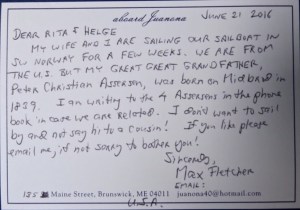 aboard Juanona
JUNE 21 2016
DEAR RITA & HELGE
MY WIFE AND I ARE SAILING OUR SAILBOAT IN
SW NORWAY FOR A FEW WEEKS. WE ARE FROM
THE U.S. BUT MY GREAT GREAT GRANDFATHER,
Peter Christian Assersen, was born on Midbrod in
1839. I am writing to the 4 Assersens in the phone
book in case we are related. I don't want to sail
by and not say hi to a cousin! If you like please
email me, if not sorry to bother you!
Sincerely,
Max Fletcher
EMAIL:
135 Maine Street, Brunswick, ME 04011 juanona40@hotmail.com
U.S.A.